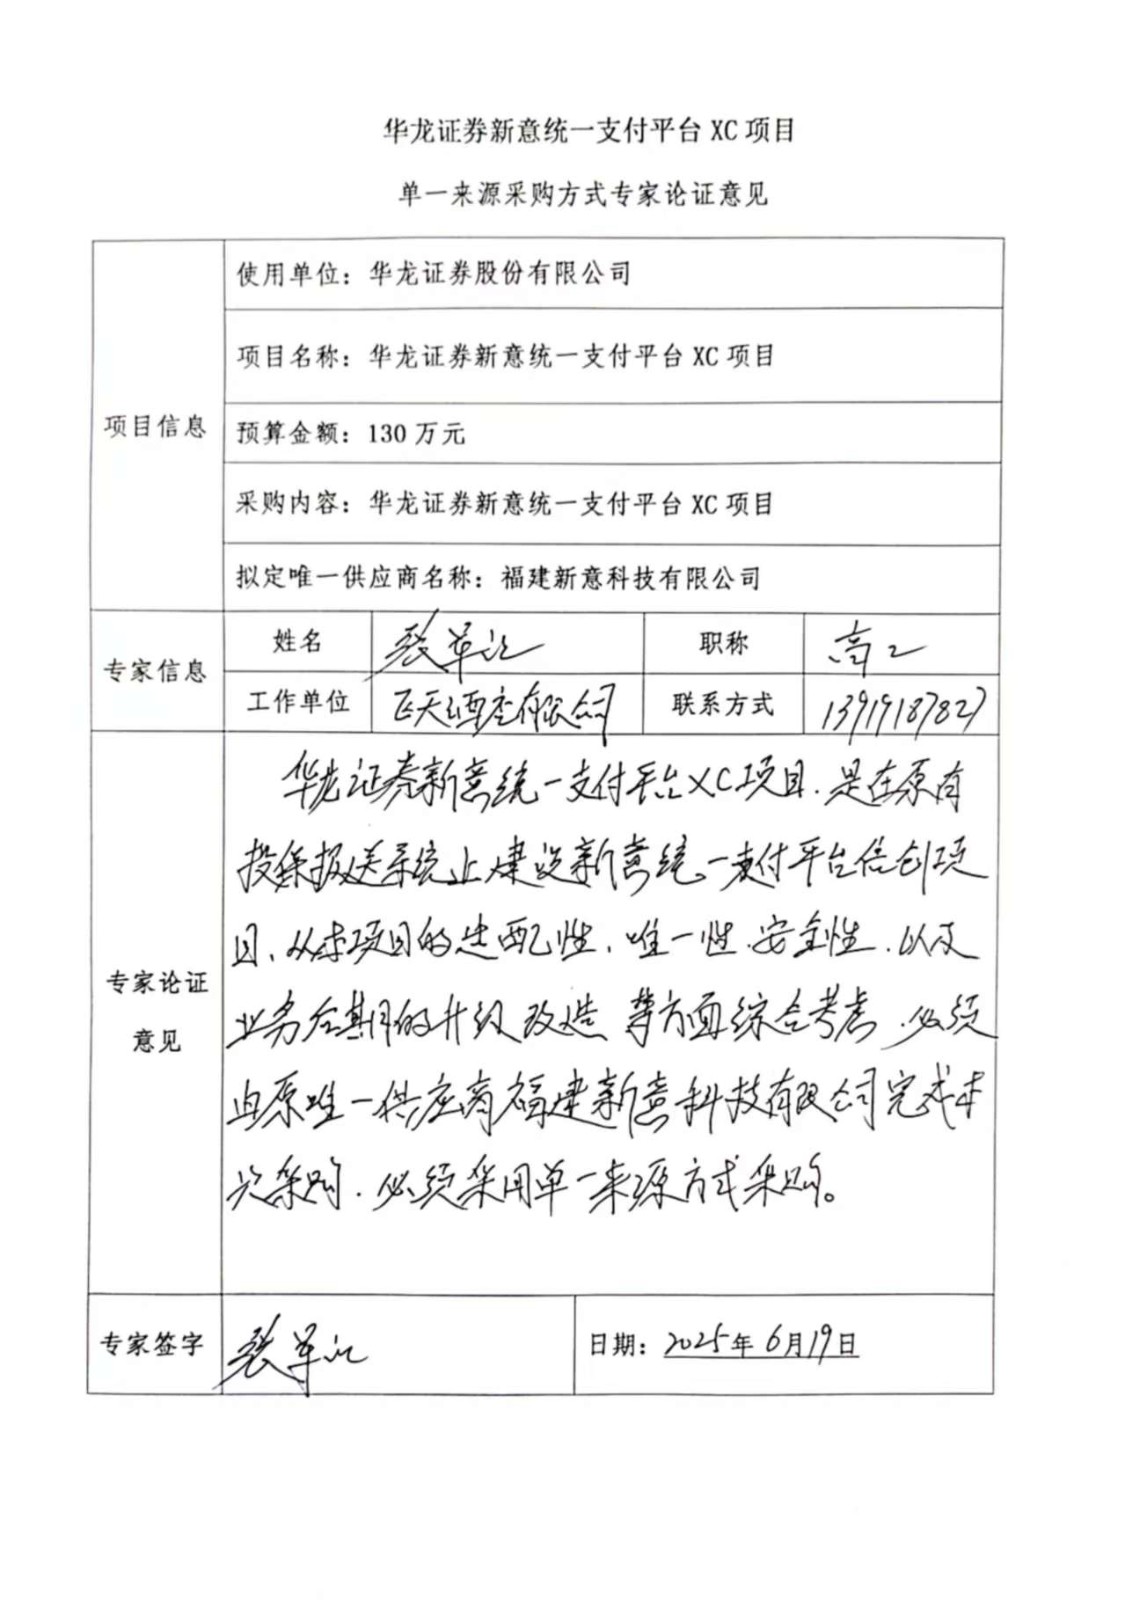 华龙证券新意统一支付平台 XC 项目
单一来源采购方式专家论证意见
项目信息
使用单位：华龙证券股份有限公司
项目名称：华龙证券新意统一支付平台 XC 项目
预算金额：130 万元
采购内容：华龙证券新意统一支付平台 XC 项目
拟定唯一供应商名称：福建新意科技有限公司
专家信息
姓名 张军 职称 高工
工作单位 飞天酒店有限公司 联系方式 13919187827
专家论证
意见
华龙证券新意统一支付平台XC项目，是在原有
投保报送系统上建设新意统一支付平台信创项
目，从本项目的适配性，唯一性，安全性，以及
业务后期的升级改造等方面综合考虑，必须
由原唯一供应商福建新意科技有限公司完成本
次采购，必须采用单一来源方式采购。
专家签字 张军 日期：2025年6月19日